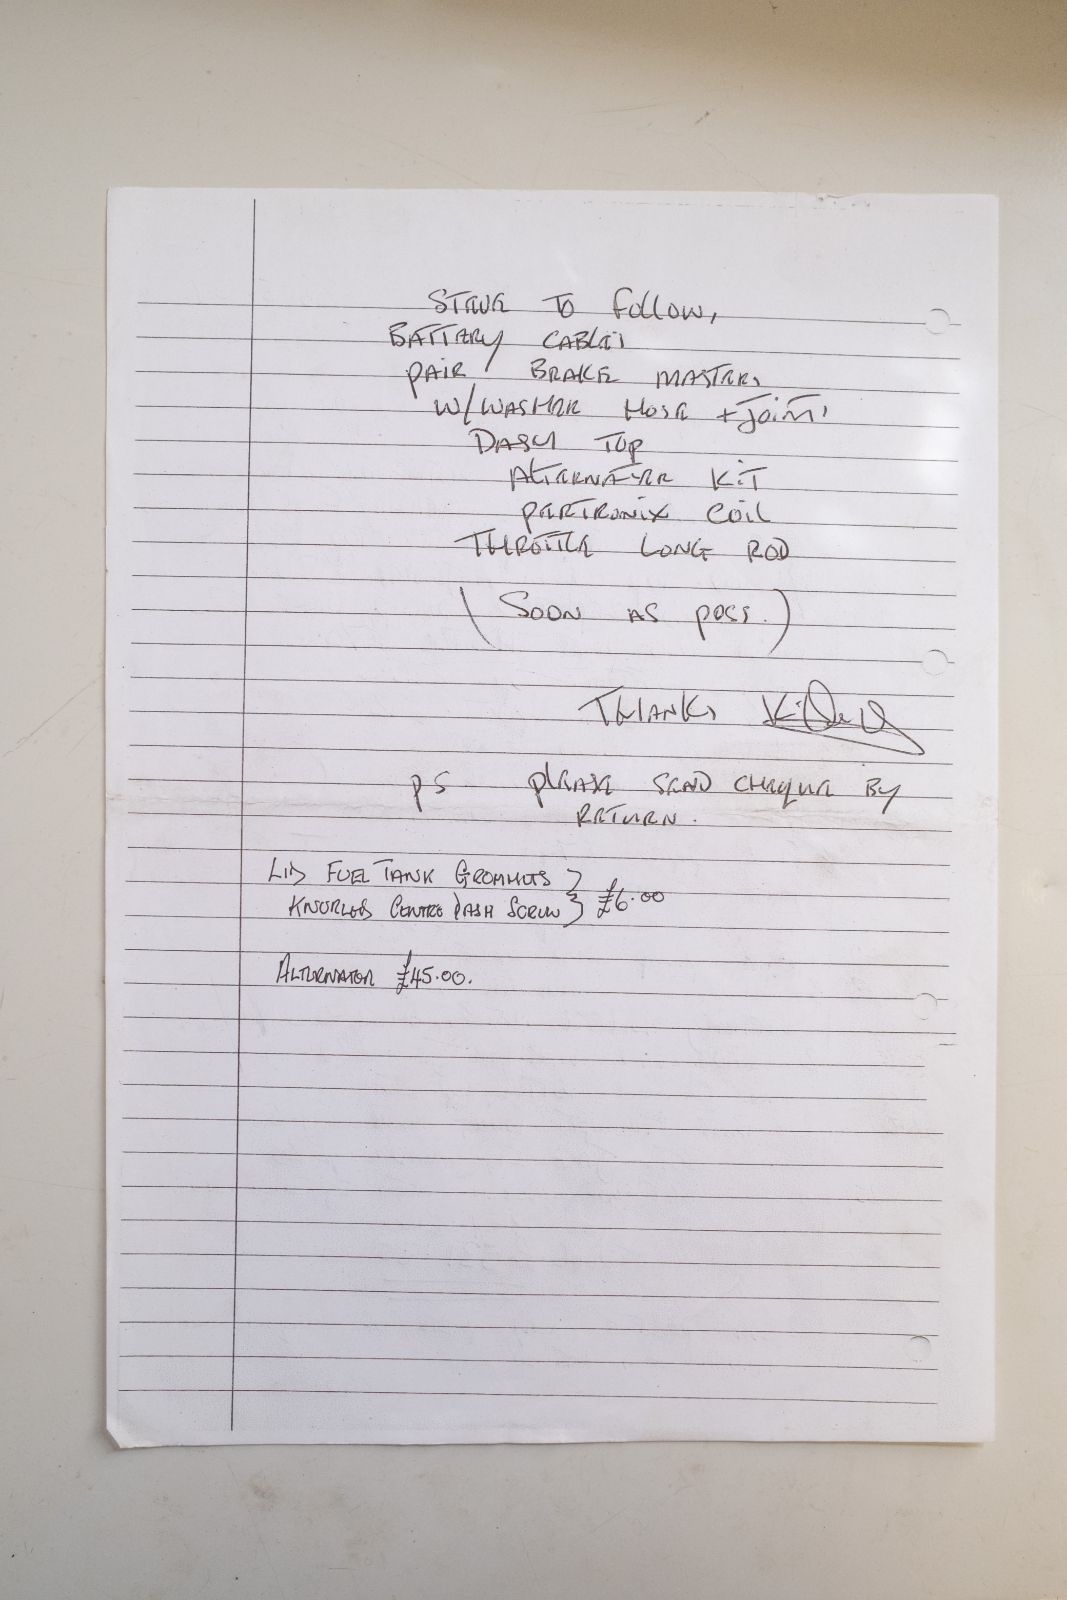 STEVE TO Follow,
BATTERY CABLES
PAIR BRAKE MASTERS
W/WASHER HOSE + JOINTS
DASH TOP
ALTERNATER KIT
PERTRONIX COIL
THROTTLE LONG ROD
(SOON AS POSS.)
THANKS
PS PLEASE SEND CHEQUE BY
RETURN.
LID FUEL TANK GROMMETS } £6.00
KNURLED CENTRE DASH SCREW }
ALTERNATOR £45.00.